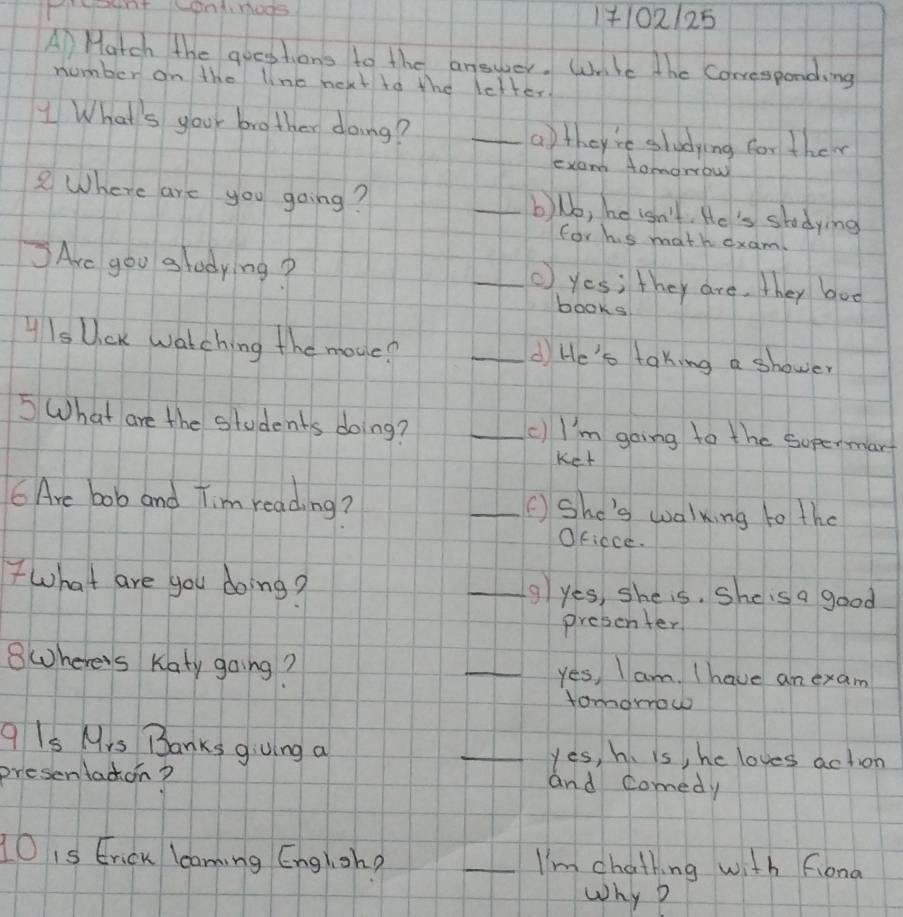 Present Continuos
17/02/25
A) Match the questions to the answer. Write the corresponding
number on the line next to the letter.
1 What's your brother doing?
a) they're studying for their
exam tomorrow
2 Where are you going?
b) No, he isn't. He's studying
for his math exam.
3 Are you studying?
c) yes; they are. they
books
4 Is watching the movie?
d) He's taking a shower
5 What are the students doing?
e) I'm going to the supermar
ket
6 Are bob and Tim reading?
f) She's walking to the
Oficce.
7 what are you doing?
g) yes, she is. She is a good
presenter.
8 Where's Katy going?
yes, I am. I have an exam
tomorrow
9 Is Mrs Banks giving a
presentation?
yes, h. is, he loves action
and comedy
10 is Erick learning English?
I'm chatting with Fiona
Why?